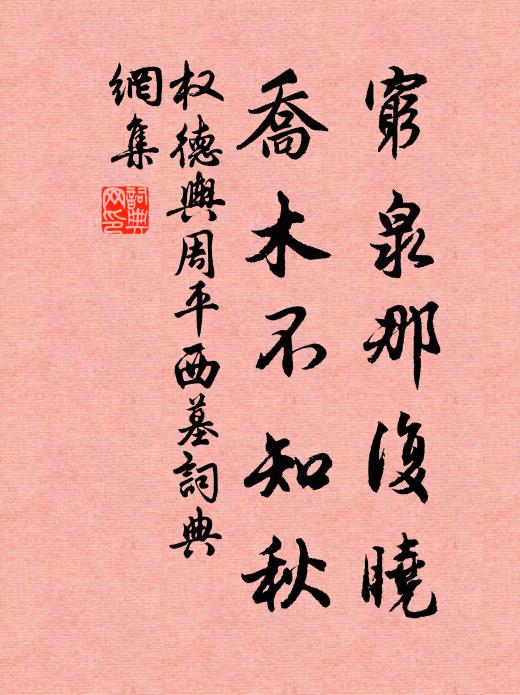 窮泉那復曉
喬木不知秋
权德輿周平西墓詞典
網集
詞典網印